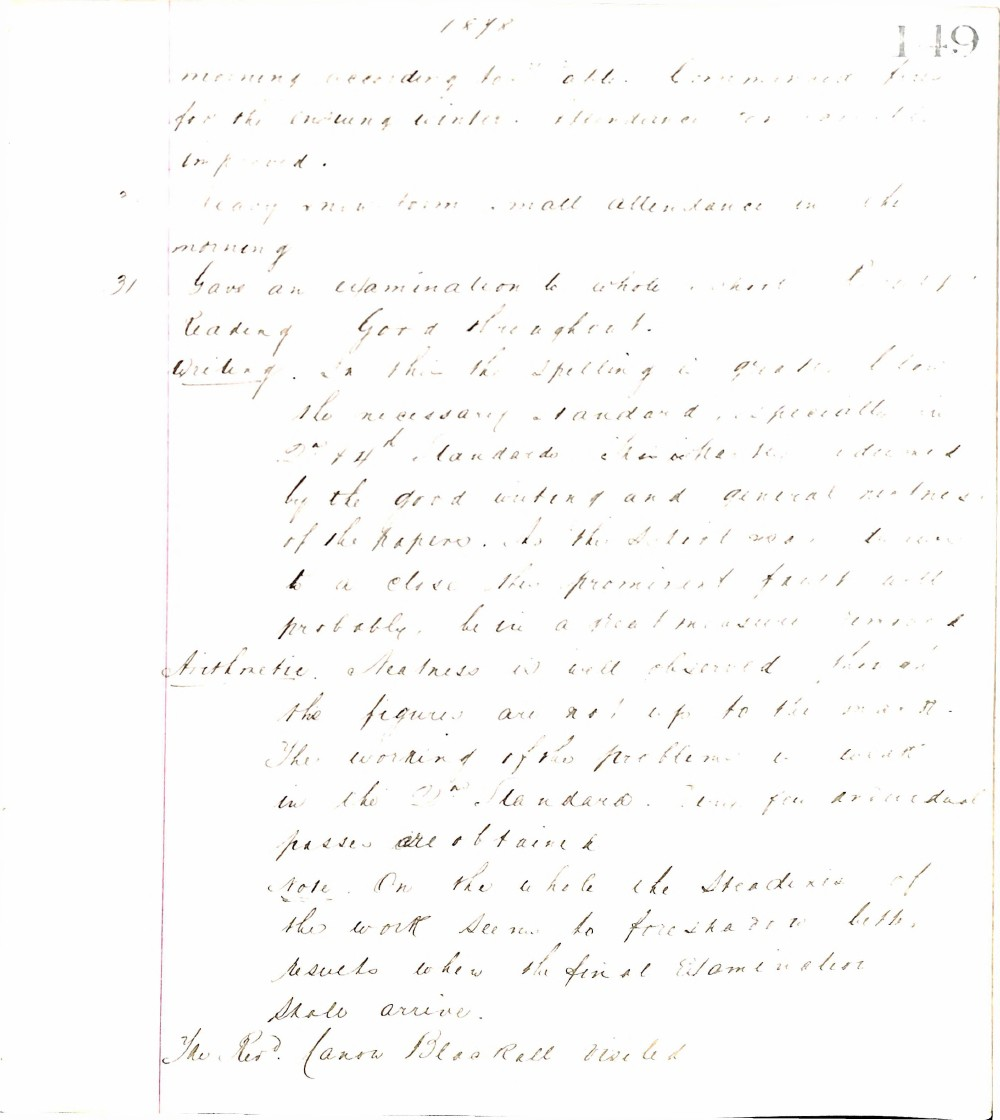 1878
149
morning according to table. Commenced fires
for the ensuing winter. Attendance
improved.
Heavy snow storm small attendance in the
morning
31 Gave an examination to whole school
Reading Good throughout.
Writing. In this the spelling is greatly below
the necessary standard, especially in
2nd & 4th Standards. redeemed
by the good writing and general neatness
of the papers. As the School year
to a close this prominent fault will
probably, be in a great measure removed
Arithmetic. Neatness is well observed though
the figures are not up to the mark.
The working of the problems is weak
in the 2nd Standard. few individual
passes are obtained
Note. On the whole the Steadiness of
the work seems to foreshadow better
results when the final Examination
shall arrive.
The Revd. Canon Blackall visited